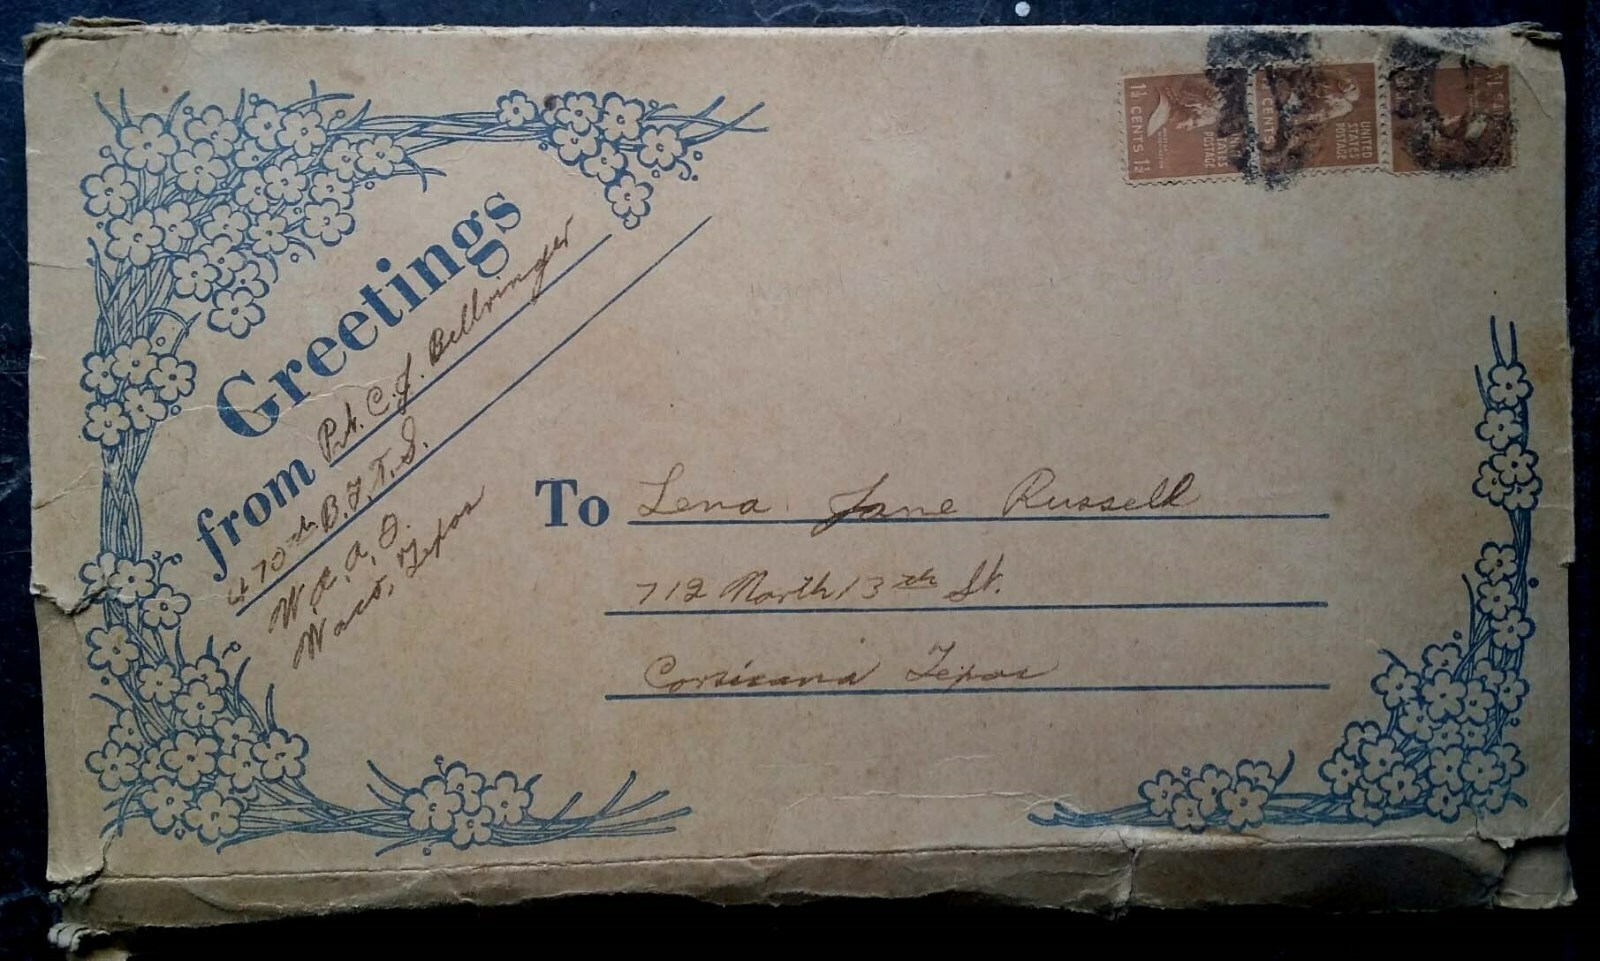 Greetings
from Pvt. C. J. Bellringer
470th B.F.T.S.
W.A.A.F.
Waco, Texas
To Lena Jane Russell
712 North 13th St.
Corsicana Texas
1½ CENTS 1½
UNITED STATES POSTAGE
CENTS
UNITED STATES POSTAGE